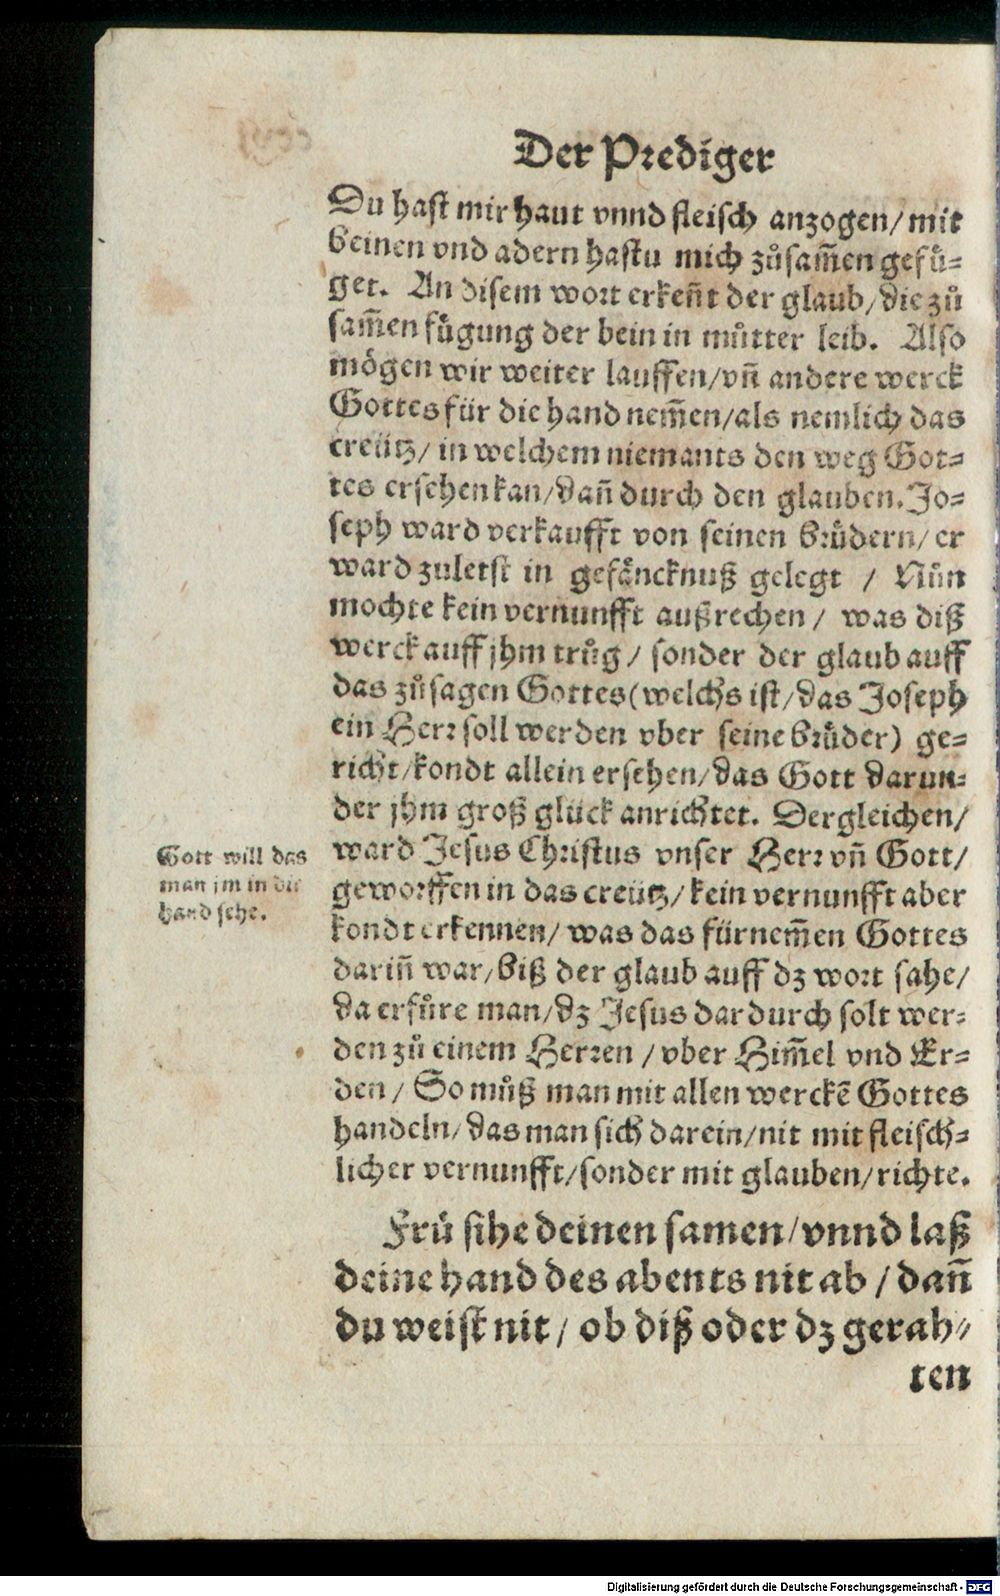 Der Prediger
Du hast mir haut vnnd fleisch anzogen/ mit
beinen vnd adern hastu mich zůsam̃en gefü-
get. An disem wort erkeñt der glaub/ die zů
sam̃en fügung der bein in můtter leib. Also
mögen wir weiter lauffen/ vñ andere werck
Gottes für die hand nem̃en/ als nemlich das
creütz/ in welchem niemants den weg Got-
tes ersehen kan/ dañ durch den glauben. Jo-
seph ward verkaufft von seinen brüdern/ er
ward zuletst in gefäncknuß gelegt / Nůn
mochte kein vernunfft außrechen / was diß
werck auff jhm trůg / sonder der glaub auff
das zůsagen Gottes (welchs ist/ das Joseph
ein Herr soll werden vber seine brüder) ge-
richt/ kondt allein ersehen/ das Gott darun-
der jhm groß glück anrichtet. Dergleichen/
ward Jesus Christus vnser Herr vñ Gott/
Gott will das
man jm in die
hand sehe.
geworffen in das creütz/ kein vernunfft aber
kondt erkennen/ was das fürnem̃en Gottes
dariñ war/ biß der glaub auff dz wort sahe/
da erfůre man/ dz Jesus dardurch solt wer-
den zů einem Herren / vber Him̃el vnd Er-
den / So můß man mit allen werckẽ Gottes
handeln/ das man sich darein/ nit mit fleisch-
licher vernunfft/ sonder mit glauben/ richte.
Frü sihe deinen samen/ vnnd laß
deine hand des abents nit ab / dañ
du weist nit / ob diß oder dz gerah-
ten
Digitalisierung gefördert durch die Deutsche Forschungsgemeinschaft - DFG